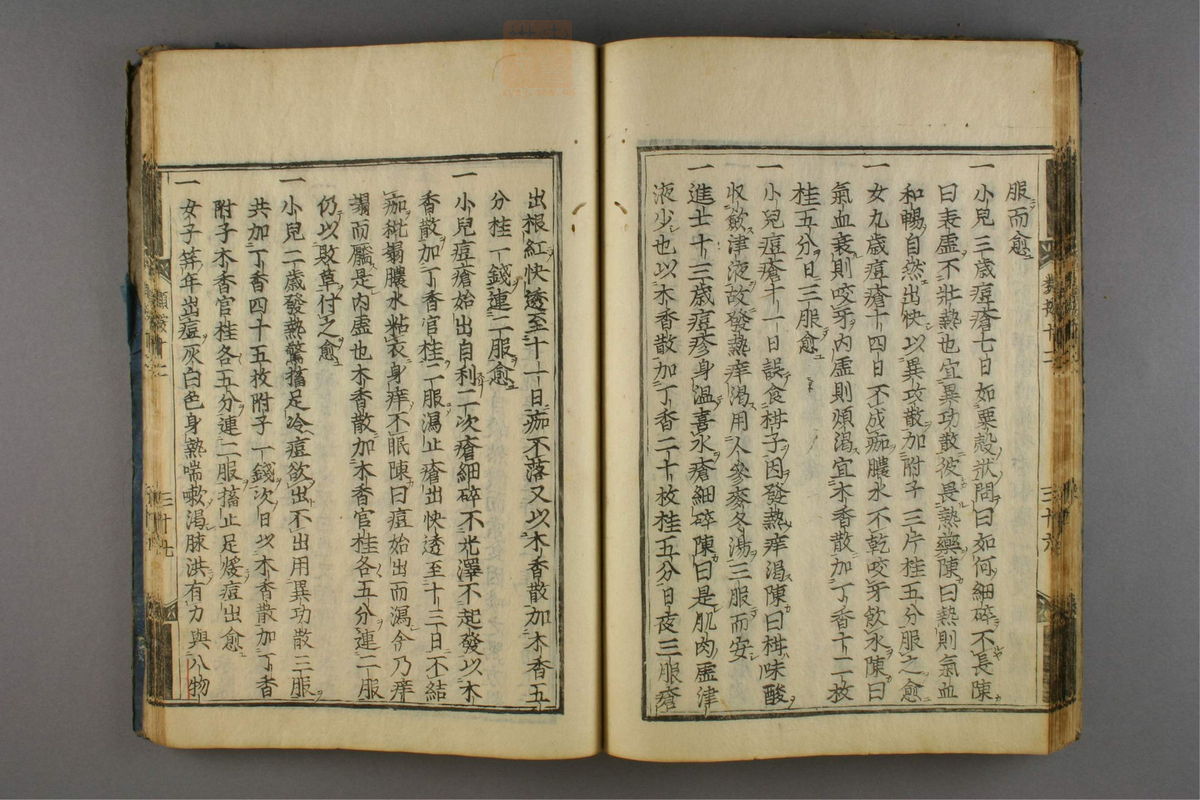 服而愈
一小兒三歲痘瘡七日如粟殼狀問曰如何細碎不長陳
曰表虛不壯熱也宜異功散彼畏熱藥陳曰熱則氣血
和暢自然出快以異攻散加附子三片桂五分服之愈
一女九歲痘瘡十四日不成痂膿水不乾咬牙飲水陳曰
氣血衰則咬牙內虛則煩渴宜木香散加丁香十二枚
桂五分日三服愈
一小兒痘瘡十一日誤食柑子因發熱痒渴陳曰柑味酸
収斂津液故發熱痒渴用人參麥冬湯三服而安
一進士十三歲痘疹身溫喜水瘡細碎陳曰是肌肉虛津
液少也以木香散加丁香二十枚桂五分日夜三服瘡
出根紅快透至十一日痂不落又以木香散加木香五
分桂一錢連二服愈
一小兒痘瘡始出自利二次瘡細碎不光澤不起發以木
香散加丁香官桂二服瀉止瘡出快透至十三日不結
痂爛塌膿水粘衣身痒不眠陳曰痘始出而瀉今乃痒
塌而靨是內虛也木香散加木香官桂各五分連二服
仍以敗草付之愈
一小兒二歲發熱驚搐足冷痘欲出不出用異功散三服
共加丁香四十五枚附子一錢次日以木香散加丁香
附子木香官桂各五分連二服搐止足煖痘出愈
一女子笄年出痘灰白色身熱喘嗽渴脉洪有力與八物
類數十二
三十六
三十七